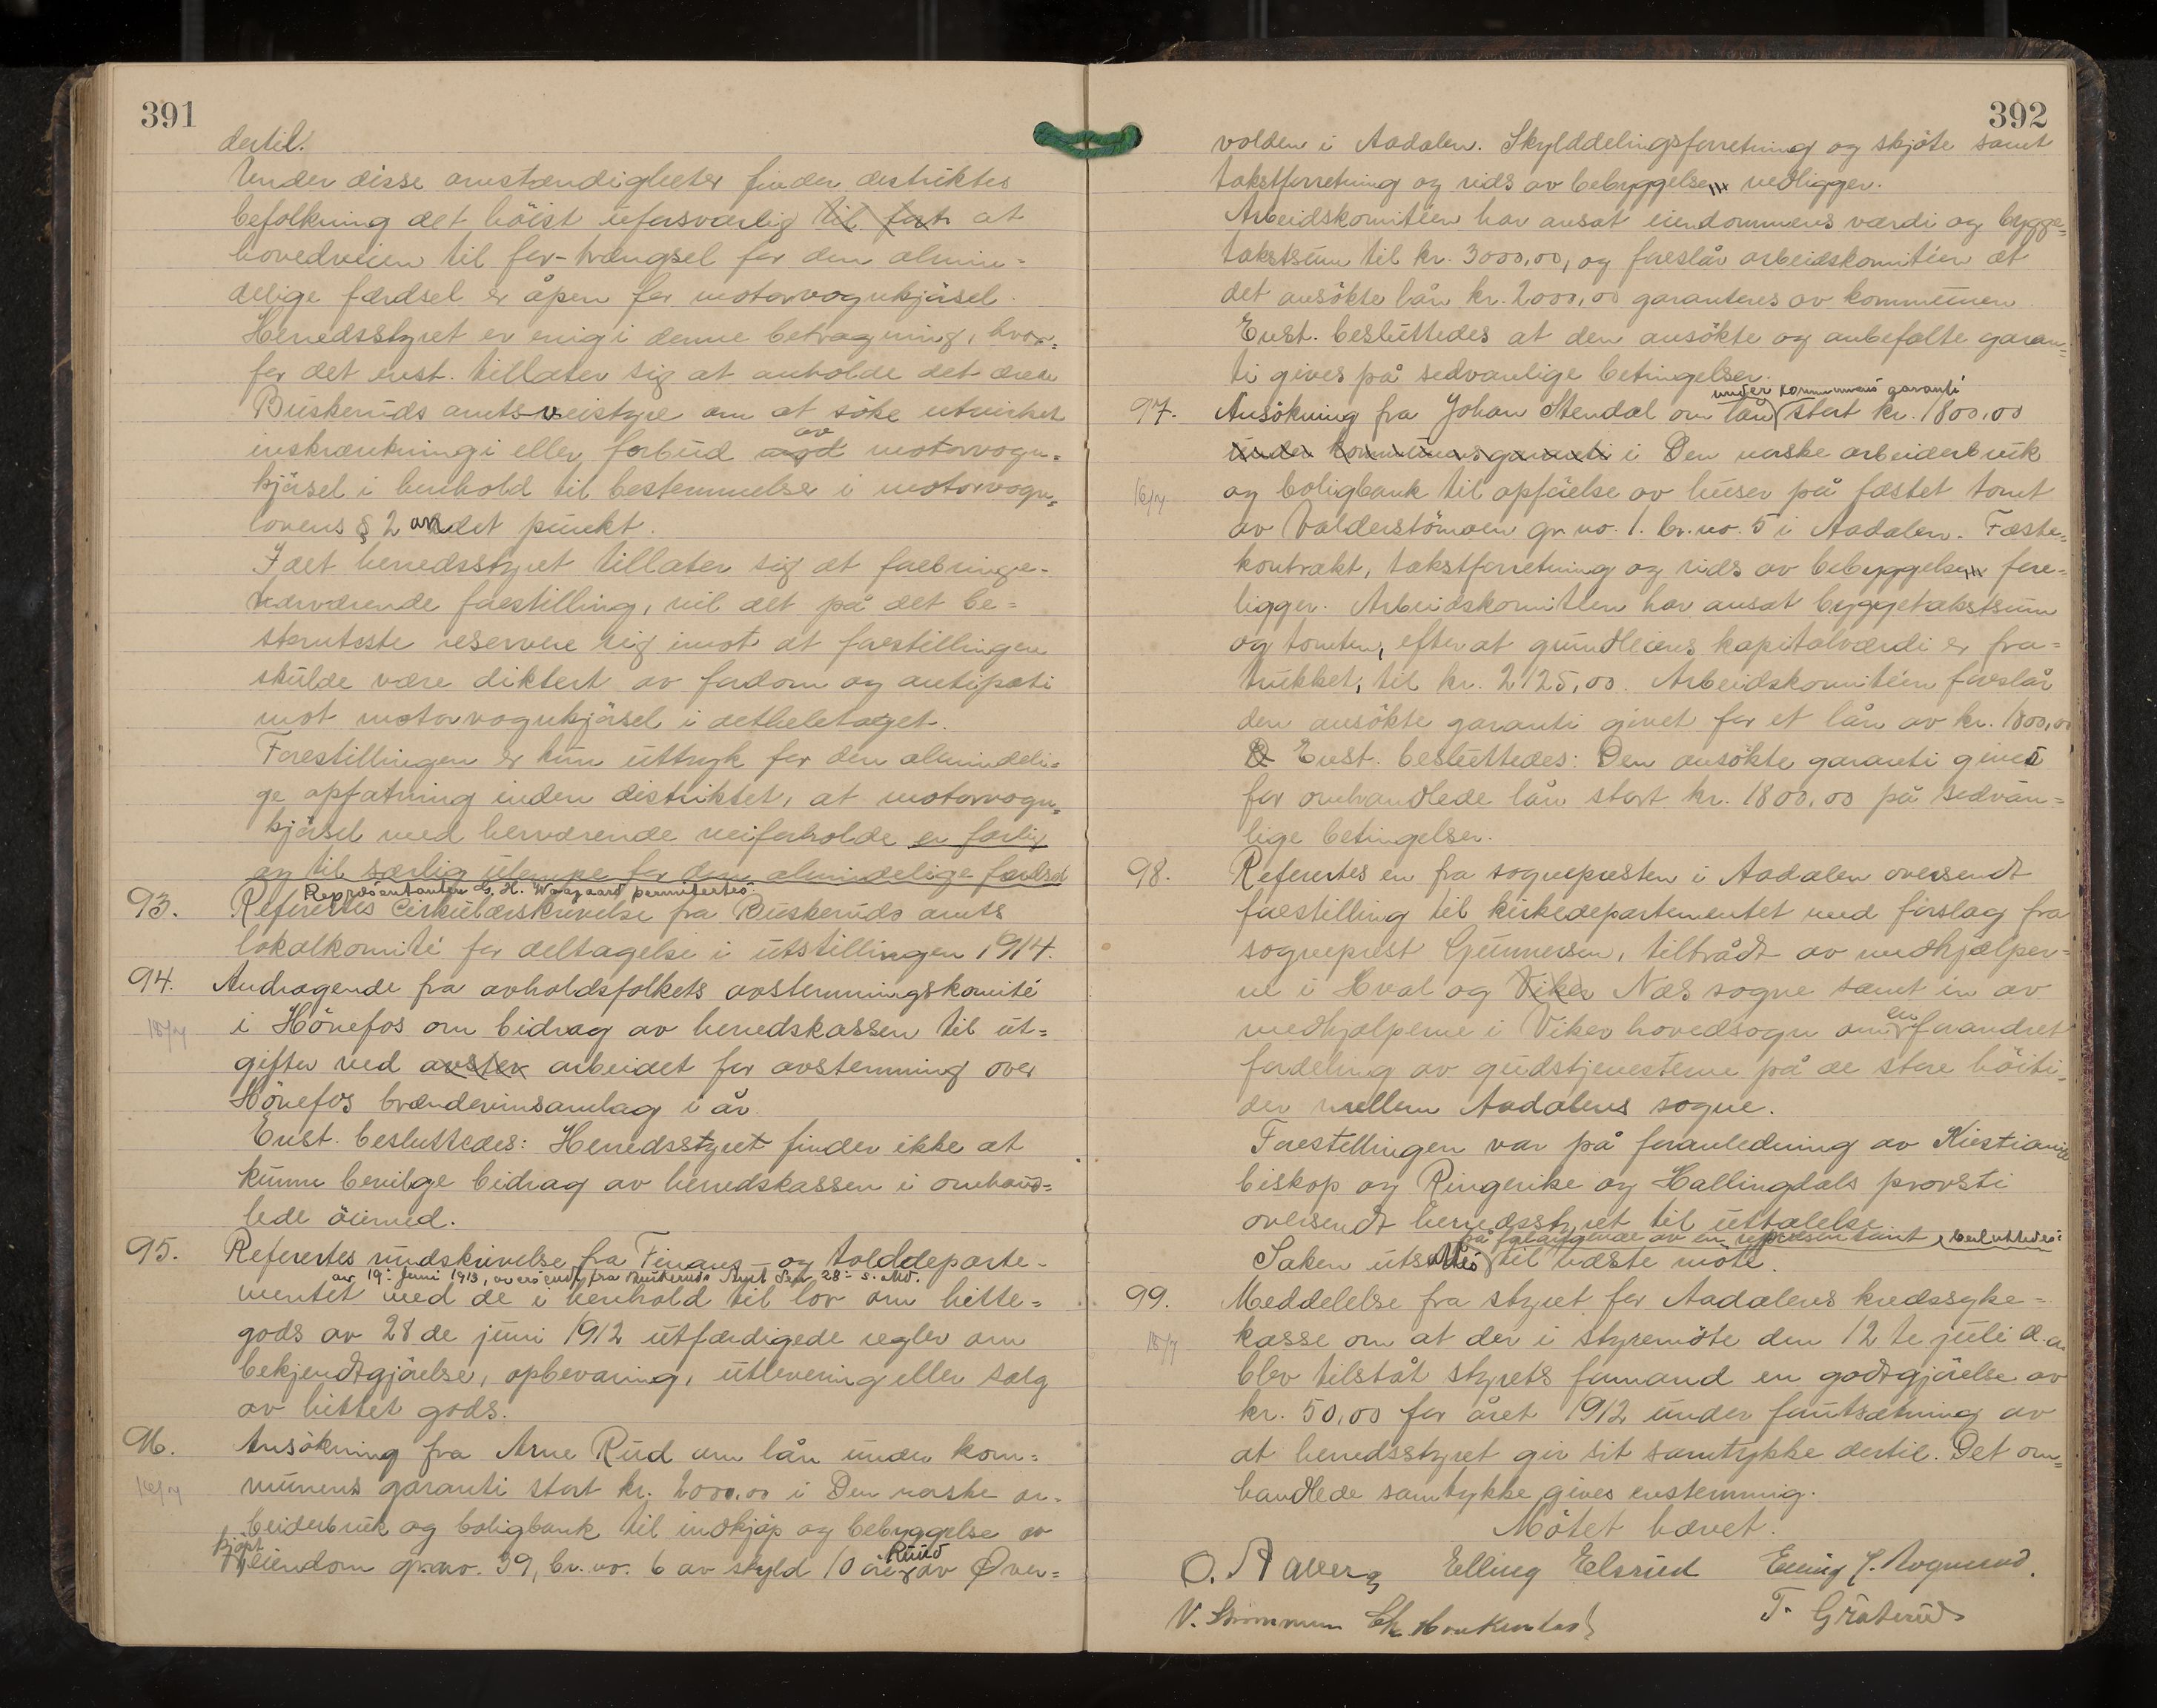 391
dertil.
Under disse omstændigheter finder destriktes
befolkning det höist uforsvarlig til fort at
hovedveien til for-trængsel for den almin=
delige færdsel er åpen for motorvognkjörsel.
Herredsstyret er enig i denne betragning, hvor=
for det enst. tillater sig at anholde det ærede
Buskeruds amtsveistyre om at söke utvirket
inskrænkning i eller forbud mot av motorvogn=
kjörsel i henhold til bestemmelse i motorvogn=
lovens § 2 andet punkt.
Idet herredsstyret tillater sig at frebringe
nærværende forestilling, vil det på det be=
stemteste reservere sig imot at forestillingen
skulde være diktert av fordom og antipati
mot motorvognkjörsel i detheletaget.
Forestillingen er kun uttryk for den almindeli=
ge opfatning inden distriktet, at motorvogn=
kjörsel med herværende veiforholde er farlig
og til særlig ulempe for den almindelige færdsel
Repræsentanten G. H. Waagaard permitertes.
93. Referertes Cirkulærskrivelse fra Buskeruds amts
lokalkomité for deltagelse i utstillingen 1914.
94. Andragende fra avholdsfolkets avstemningskomité
18/7 i Hönefos om bidrag av herredskassen til ut=
gifter ved avstev arbeidet for avstemning over
Hönefos brændevinsamlag i år.
Enst. besluttedes: Herredsstyret finder ikke at
kunne bevilge bidrag av herredskassen i omhand=
lede öiemed.
95. Referertes rundskrivelse fra Finans- og tolddeparte-
av 19. Juni 1913, oversendt fra Buskeruds Amt Den 28. s. Md.
mentet med de i henhold til lov om hitte=
gods av 28 de juni 1912 utfærdigede regler om
bekjendtgjörelse, opbevaring, utlevering eller salg
av hittet gods.
96. Ansökning fra Arne Rud om lån under kom=
16/7 munens garanti stort kr. 2000.00 i Den norske ar-
beiderbruk og boligbank til indkjöp og bebyggelse av
kjöpt eiendom gr.no. 39, br.no. 6 av skyld 10 öre Ruud av Över=
392
volden i Aadalen. Skylddelingsforretning og skjöte samt
takstforretning og rids av bebyggelsen vedligger.
Arbeidskomitéen har ansat eiendommens værdi og bygge=
takstsum til kr. 3000,00, og foreslår arbeidskomitéen at
det ansökte lån kr. 2000,00 garanteres av kommunen.
Enst. besluttedes at den ansökte og anbefalte garan=
ti gives på sedvanlige betingelser.
under kommunens garanti
97. Ansökning fra Johan Stendal om lån stort kr. 1800,00
under kommunens garanti i Den norske arbeiderbruk
16/7 og boligbank til opförelse av huser på fæstet tomt
av Valderstömoen gr.no. 1. br.no. 5 i Aadalen. Fæste=
kontrakt, takstforretning og rids av bebyggelsen fore=
ligger. Arbeidskomitéen har ansat byggetakstsum
og tomten, efter at grundleiens kapitalværdi er fra=
trukket, til kr. 2125,00. Arbeidskomitéen foreslår
den ansökte garanti givet for et lån av kr. 1800,00
Enst. besluttedes: Den ansökte garanti gives
for omhandlede lån stort kr. 1800,00 på sedvan=
lige betingelser.
98. Referertes en fra sognepresten i Aadalen oversendt
forestilling til kirkedepartementet med forslag fra
sogneprest Gunnersen, tiltrådt av medhjælper=
ne i Hval og Viker Næs sogne samt in av
medhjælperne i Viker hovedsogn om en forandret
fordeling av gudstjenesterne på de store höiti=
der mellem Aadalens sogne.
Forestillingen var på foranledning av Kristiania
biskop og Ringerike og Hallingdals provsti
oversendt herredsstyret til uttalelse.
på forlangende av en repræsentant besluttedes:
Saken utsattes til næste möte.
99. Meddelelse fra styret for Aadalens kredssyke=
18/7 kasse om at der i styremöte den 12 te juli d.a.
blev tilståt styrets formand en godtgjörelse av
kr. 50,00 for året 1912 under forutsætning av
at herredsstyret gir sit samtykke dertil. Det om=
handlede samtykke gives enstemmig.
Mötet hævet.
Elling Elsrud
V. Strømmen
T. Gråterud